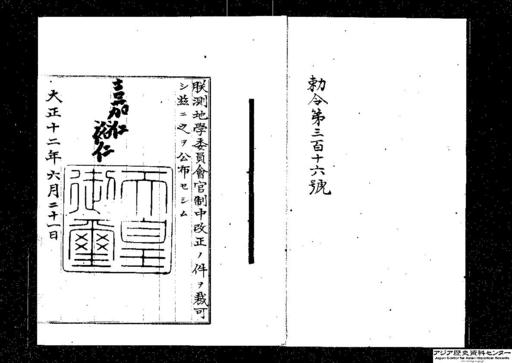 勅令第三百十六號
朕測地學委員會官制中改正ノ件ヲ裁可
シ茲ニ之ヲ公布セシム
嘉仁
裕仁
天皇
御璽
大正十二年六月二十一日
アジア歴史資料センター
Japan Center for Asian Historical Records